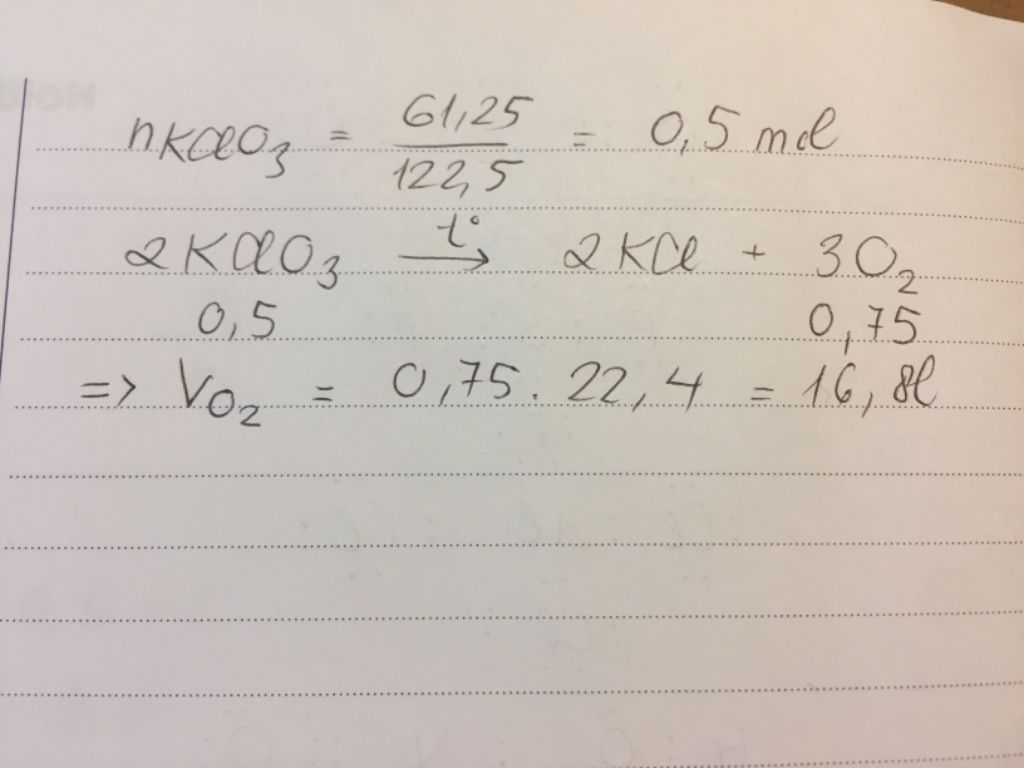 nKClO3 = 61,25/122,5 = 0,5 mol
2KClO3 t°→ 2KCl + 3O2
0,5 0,75
=> VO2 = 0,75 . 22,4 = 16,8l